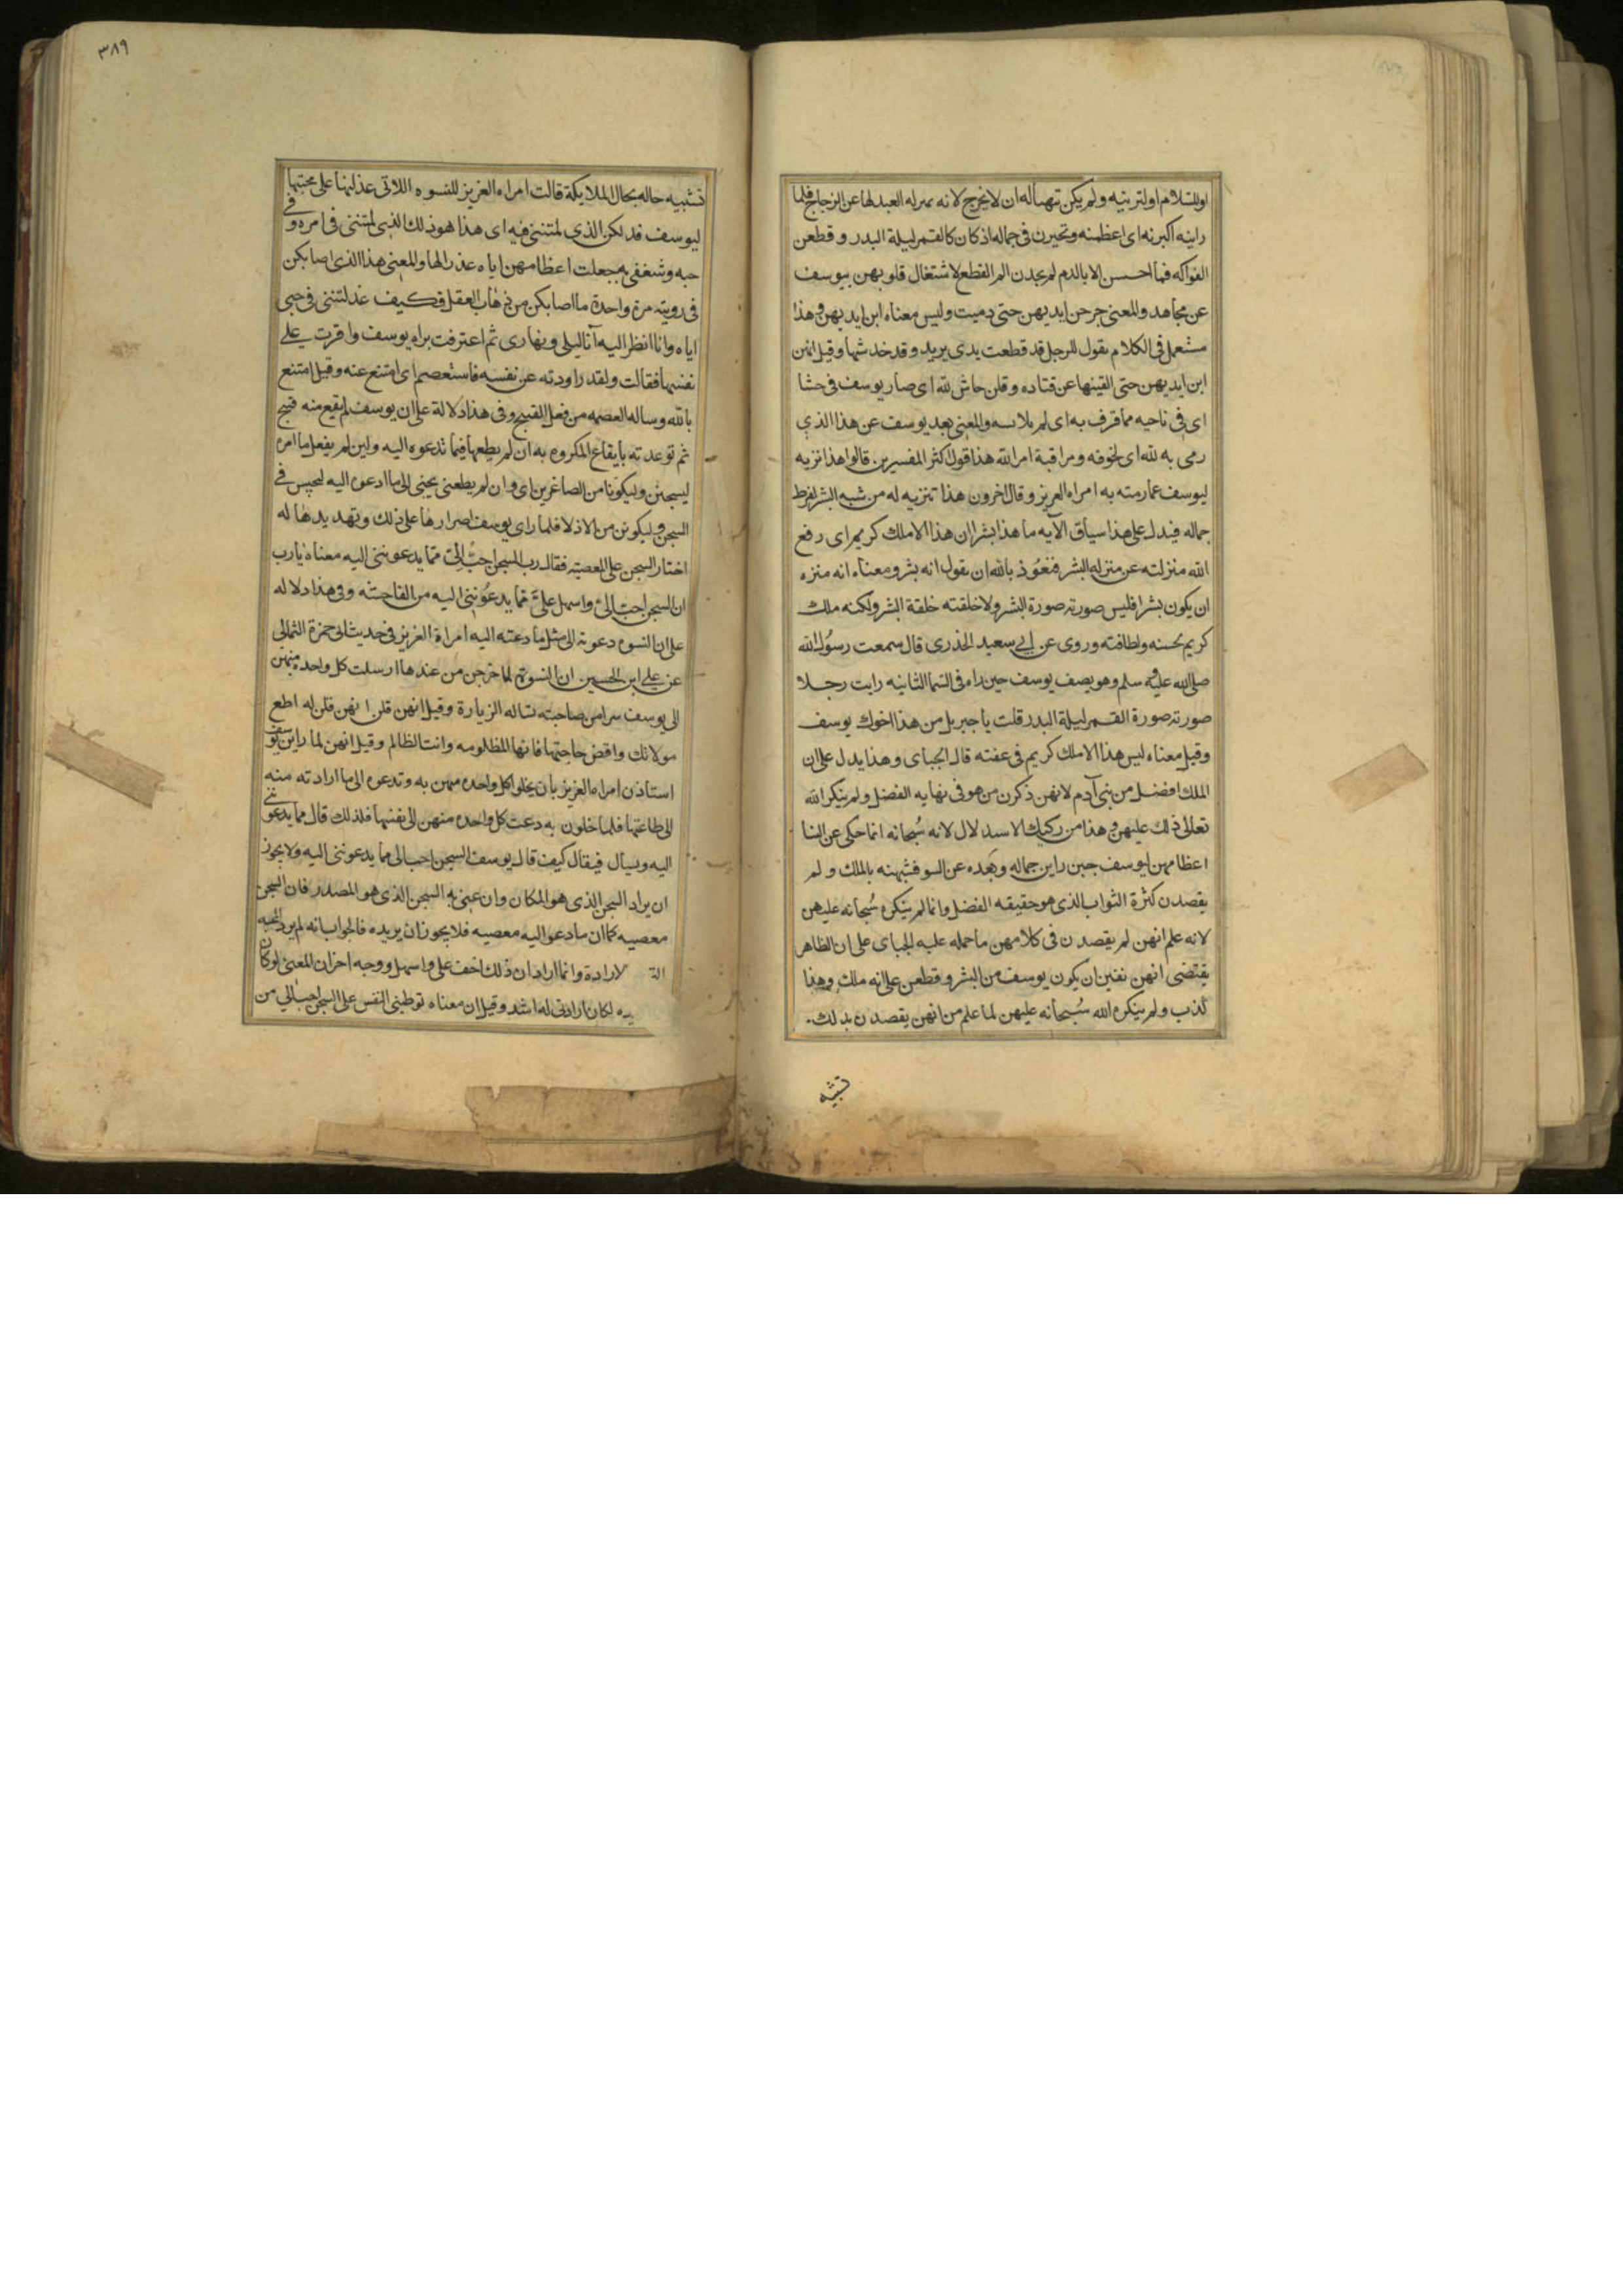 او للسلام او لتريينه ولم يكن تهيأ له ان لا يخرج لانه بمنزله العبد لها عن الزجاج فلما
راينه اكبرنه اى اعظمنه وتحيرن فى جماله اذ كان كالقمر ليلة البدر وقطعن
الفواكه فما احسسن الا بالدم لم يجدن الم القطع لاشتغال قلوبهن بيوسف
عن مجاهد والمعنى جرحن ايديهن حتى دميت وليس معناه ابن ايديهن وهذا
مستعمل فى الكلام يقول للرجل قد قطعت يدى يريد وقد خدشها وقيل انهن
ابن ايديهن حتى القينها عن قتاده وقلن حاش لله اى صار يوسف فى حشا
اى فى ناحيه مما قرف به اى لم يلابسه والمعنى بعد يوسف عن هذا الذي
رمى به لله اى لخوفه ومراقبة امر الله هذا قول اكثر المفسرين قالوا هذا تنزيه
ليوسف عما رمته به امراه العزيز وقال اخرون هذا تنزيه له من شبه البشر لفرط
جماله فيدل على هذا سياق الآيه ما هذا بشرا ان هذا الا ملك كريم اى رفع
الله منزلته عن منزله البشر فنعوذ بالله ان نقول انه بشر ومعناه انه منزه
ان يكون بشرا فليس صورته صورة البشر ولا خلقته خلقة البشر ولكنه ملك
كريم لحسنه ولطافته وروى عن ابى سعيد الخدرى قال سمعت رسول الله
صلى الله عليه وسلم وهو يصف يوسف حين راه فى السما الثانيه رايت رجلا
صورته صورة القمر ليلة البدر قلت يا جبريل من هذا اخوك يوسف
وقيل معناه ليس هذا الا ملك كريم فى عفته قال الجباى وهذا يدل على ان
الملك افضل من بنى آدم لانهن ذكرن من هو فى نهايه الفضل ولم ينكر الله
تعالى ذلك عليهن وهذا من ركيك الاستدلال لانه سُبحانه انما حكى عن النسا
اعظامهن ليوسف حين راين جماله وبعده عن السو فشبهنه بالملك ولم
يقصدن كثرة الثواب الذى هو حقيقه الفضل وانما لم ينكره سُبحانه عليهن
لانه علم انهن لم يقصدن فى كلامهن ما حمله عليه الجباى على ان الظاهر
يقتضى انهن نفين ان يكون يوسف من البشر وقطعن على انه ملك وهذا
كذب ولم ينكره الله سُبحانه عليهن لما علم من انهن يقصدن بذلك.
تشبيه
٣٨٩
تشبيه حاله بحال الملايكة قالت امراه العزيز للنسوه اللاتى عذلنها على محبتها
ليوسف فذلكن الذي لمتننى فيه اى هذا هو ذلك الذى لمتننى فى امره وفى
حبه وشغفى به جعلت اعظامهن اياه عذرا لها والمعنى هذا الذى اصابكن
فى رويته مرة واحدة ما اصابكن من ذهاب العقل فكيف عذلتننى فى حبى
اياه وانا انظر اليه آنا ليلى ونهارى ثم اعترفت ببراه يوسف واقرت على
نفسها فقالت ولقد راودته عن نفسه فاستعصم اى امتنع عنه وقيل امتنع
بالله وساله العصمه من فعل القبيح وفى هذا دلالة على ان يوسف لم يقع منه قبيح
ثم توعدته بايقاع المكروه به ان لم يطعها فيما تدعوه اليه ولين لم يفعل ما امره
ليسجنن وليكونا من الصاغرين اى وان لم يطعنى يجبنى الى ما ادعوه اليه ليحبس فى
السجن وليكونن من الاذلا فلما راى يوسف اصرارها على ذلك وتهديدها له
اختار السجن على المعصيه فقال رب السجن احبُّ الىّ مما يدعوننى اليه معناه يا رب
ان السجن احب الىّ واسهل علىَّ مما يدعُوننى اليه من الفاحشه وفى هذا دلاله
على ان النسوه دعونه الى مثل ما دعته اليه امراة العزيز فى حديث ابى حمزة الثمالى
عن على ابن الحسين ان النسوة لما خرجن من عندها ارسلت كل واحده منهن
الى يوسف سرا من صاحبته تساله الزيارة وقيل انهن قلن انهن قلن له اطع
مولاتك واقض حاجتها فانها المظلومه وانت الظالم وقيل انهن لما راين يوسف
استاذن امراه العزيز بان يخلو كل واحده منهن به وتدعوه الى ما ارادته منه
الى طاعتها فلما خلون به دعت كل واحده منهن الى نفسها فلذلك قال مما يدعوننى
اليه ويسال فيقال كيف قال يوسف السجن احب الى مما يدعوننى اليه ولا يجوز
ان يراد السجن الذى هو المكان وان عنى به السجن الذى هو المصدر فان السجن
معصيه كما ان ما دعو اليه معصيه فلا يجوز ان يريده فالجواب انه لم يرد المحبه
الة لارادة وانما اراد ان ذلك اخف على واسهل ووجه اخر ان المعنى لو كان
يده لكان ارادتى له اشد وقيل ان معناه توطينى النفس على السجن احب الى من